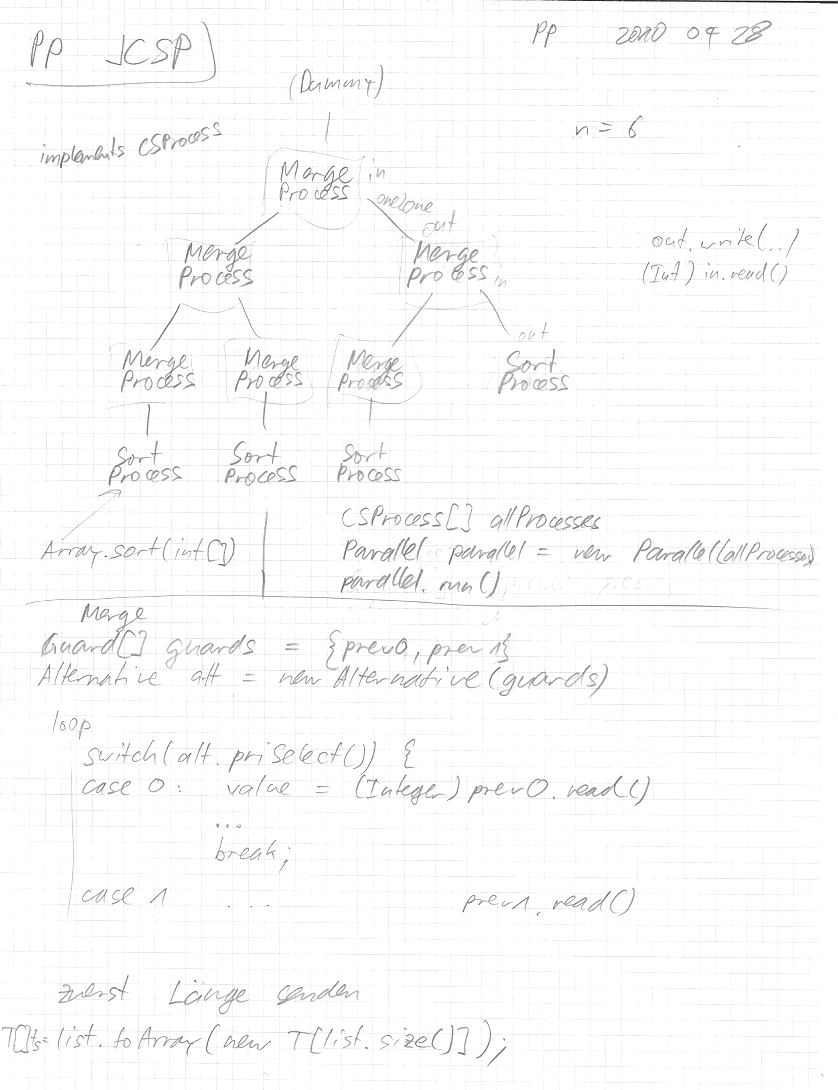 PP JCSP
PP 2010 04 28
(Dummy)
n = 6
implements CSProcess
Merge in
Process
one2one
out
Merge
Process
Merge
Process in
out.write(..)
(Int) in.read()
out
Merge
Process
Merge
Process
Merge
Process
Sort
Process
Sort
Process
Sort
Process
Sort
Process
Array.sort(int[])
CSProcess[] allProcesses
Parallel parallel = new Parallel(allProcesses)
parallel.run()
Merge
Guard[] guards = {prev0, prev1}
Alternative alt = new Alternative(guards)
loop
switch(alt.priSelect()) {
case 0: value = (Integer) prev0.read()
...
break;
case 1 ... prev1.read()
zuerst Länge senden
T[] ts = list.toArray(new T[list.size()]);